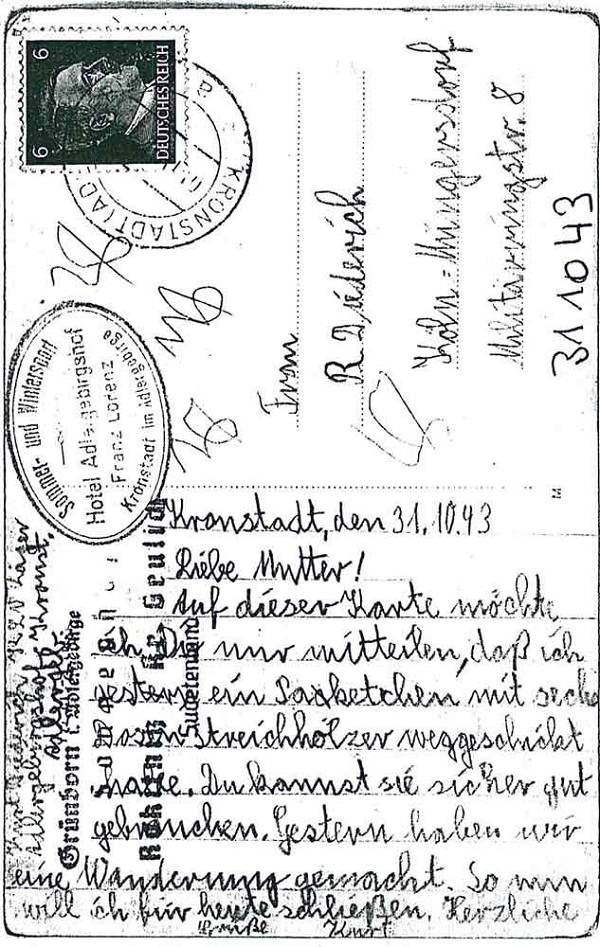 6 DEUTSCHES REICH 6
KRONSTADT (AD
Sommer- und Wintersport
Hotel Adlergebirgshof
Franz Lorenz
Kronstadt im Adlergebirge
Frau
R. Diederich
Köln=Müngersdorf
Militärringstr. 8
31 10 43
Kronstadt, den 31.10.43
Liebe Mutter!
Auf dieser Karte möchte
ich Dir nur mitteilen, daß ich
gestern ein Paketchen mit sechs
Dosen Streichhölzer weggeschickt
habe. Du kannst sie sicher gut
gebrauchen. Gestern haben wir
eine Wanderung gemacht. So nun
will ich für heute schließen. Herzliche
Grüße Kurt
Kurt Diederich KLV Lager
Adlergebirgshof Kronst.
Grünborn i. Adlergebirge
Sudetenland